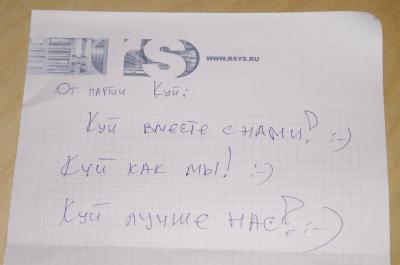 RS
WWW.RSYS.RU
От партии Куй:
Куй вместе с нами! :-)
Куй как мы! :-)
Куй лучше нас! :-)